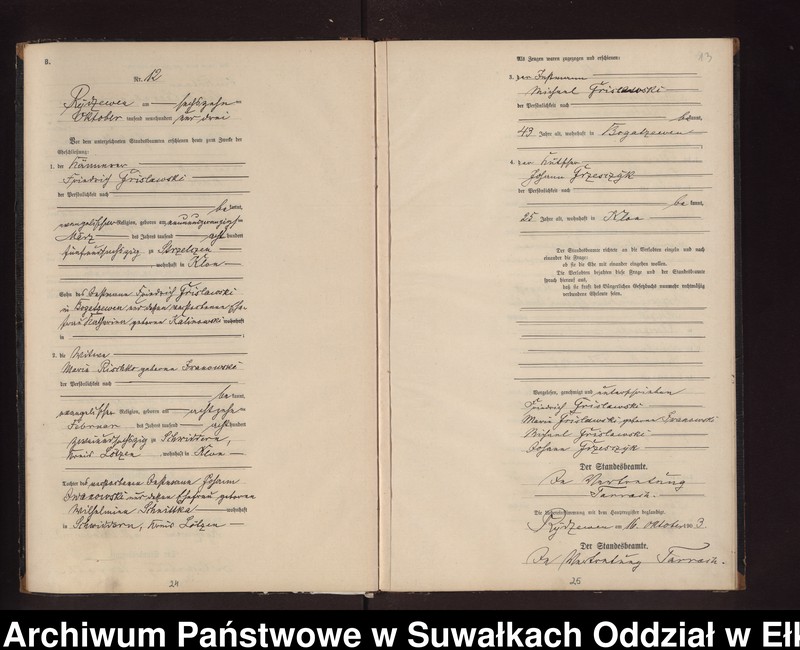 B.
Nr. 12
Rydzewen am sechszehn
Oktober tausend neunhundert und drei
Vor dem unterzeichneten Standesbeamten erschienen heute zum Zwecke der
Eheschließung:
1. der Kämmerer
Friedrich Grislawski
der Persönlichkeit nach
be kannt,
evangelischer Religion, geboren am neunundzwanzigsten
März des Jahres tausend acht hundert
fünfundsechszig zu
, wohnhaft in Klon
Sohn des Instmann Friedrich Grislawski
in Bogatzewen und dessen verstorbenen Ehe-
frau Katharina geborene Kalinowski wohnhaft
in ;
2. die Witwe
Maria Rischko geborene Iwanowski
der Persönlichkeit nach
be kannt,
evangelischer Religion, geboren am achtzehn
Februar des Jahres tausend acht hundert
zweiundsechszig zu Schwiddern,
Kreis Lötzen, wohnhaft in Klon
Tochter des verstorbenen Instmann Johann
Iwanowski und dessen Ehefrau geborenen
Wilhelmine Schnittka wohnhaft
in Schwiddern, Kreis Lötzen
24
13
Als Zeugen waren zugezogen und erschienen:
3. der Instmann
Michael Grislawski
der Persönlichkeit nach
be kannt,
43 Jahre alt, wohnhaft in Bogatzewen
4. der Kutscher
Johann Grzesczyk
der Persönlichkeit nach
be kannt,
25 Jahre alt, wohnhaft in Klon
Der Standesbeamte richtete an die Verlobten einzeln und nach
einander die Frage:
ob sie die Ehe mit einander eingehen wollen.
Die Verlobten bejahten diese Frage und der Standesbeamte
sprach hierauf aus,
daß sie kraft des Bürgerlichen Gesetzbuchs nunmehr rechtmäßig
verbundene Eheleute seien.
Vorgelesen, genehmigt und unterschrieben
Friedrich Grislawski
Maria Grislawski geborene Iwanowski
Michael Grislawski
Johann Grzesczyk
Der Standesbeamte.
In Vertretung
Tarrach.
Die Übereinstimmung mit dem Hauptregister beglaubigt.
Rydzewen am 16. Oktober 1903.
Der Standesbeamte.
In Vertretung Tarrach.
25
Archiwum Państwowe w Suwałkach Oddział w Ełk